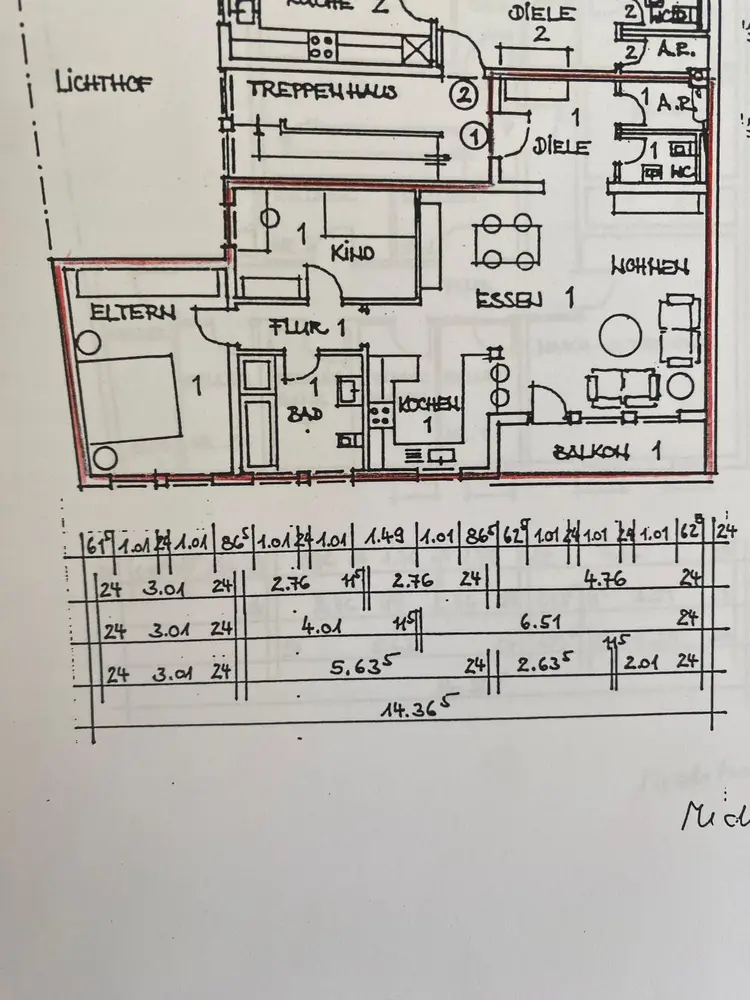 KÜCHE 2
DIELE
2
2 WC
2 A.R.
LICHTHOF
TREPPENHAUS
2
1
1
DIELE
1
A.R.
1
WC
1
KIND
WOHNEN
ESSEN 1
ELTERN
1
FLUR 1
1
BAD
KOCHEN
1
BALKON 1
61⁵ 1.01 24 1.01 86⁵ 1.01 24 1.01 1.49 1.01 86⁵ 62⁵ 1.01 24 1.01 24 1.01 62⁵ 24
24 3.01 24 2.76 11⁵ 2.76 24 4.76 24
24 3.01 24 4.01 11⁵ 6.51 24
24 3.01 24 5.63⁵ 24 2.63⁵ 11⁵ 2.01 24
14.36⁵